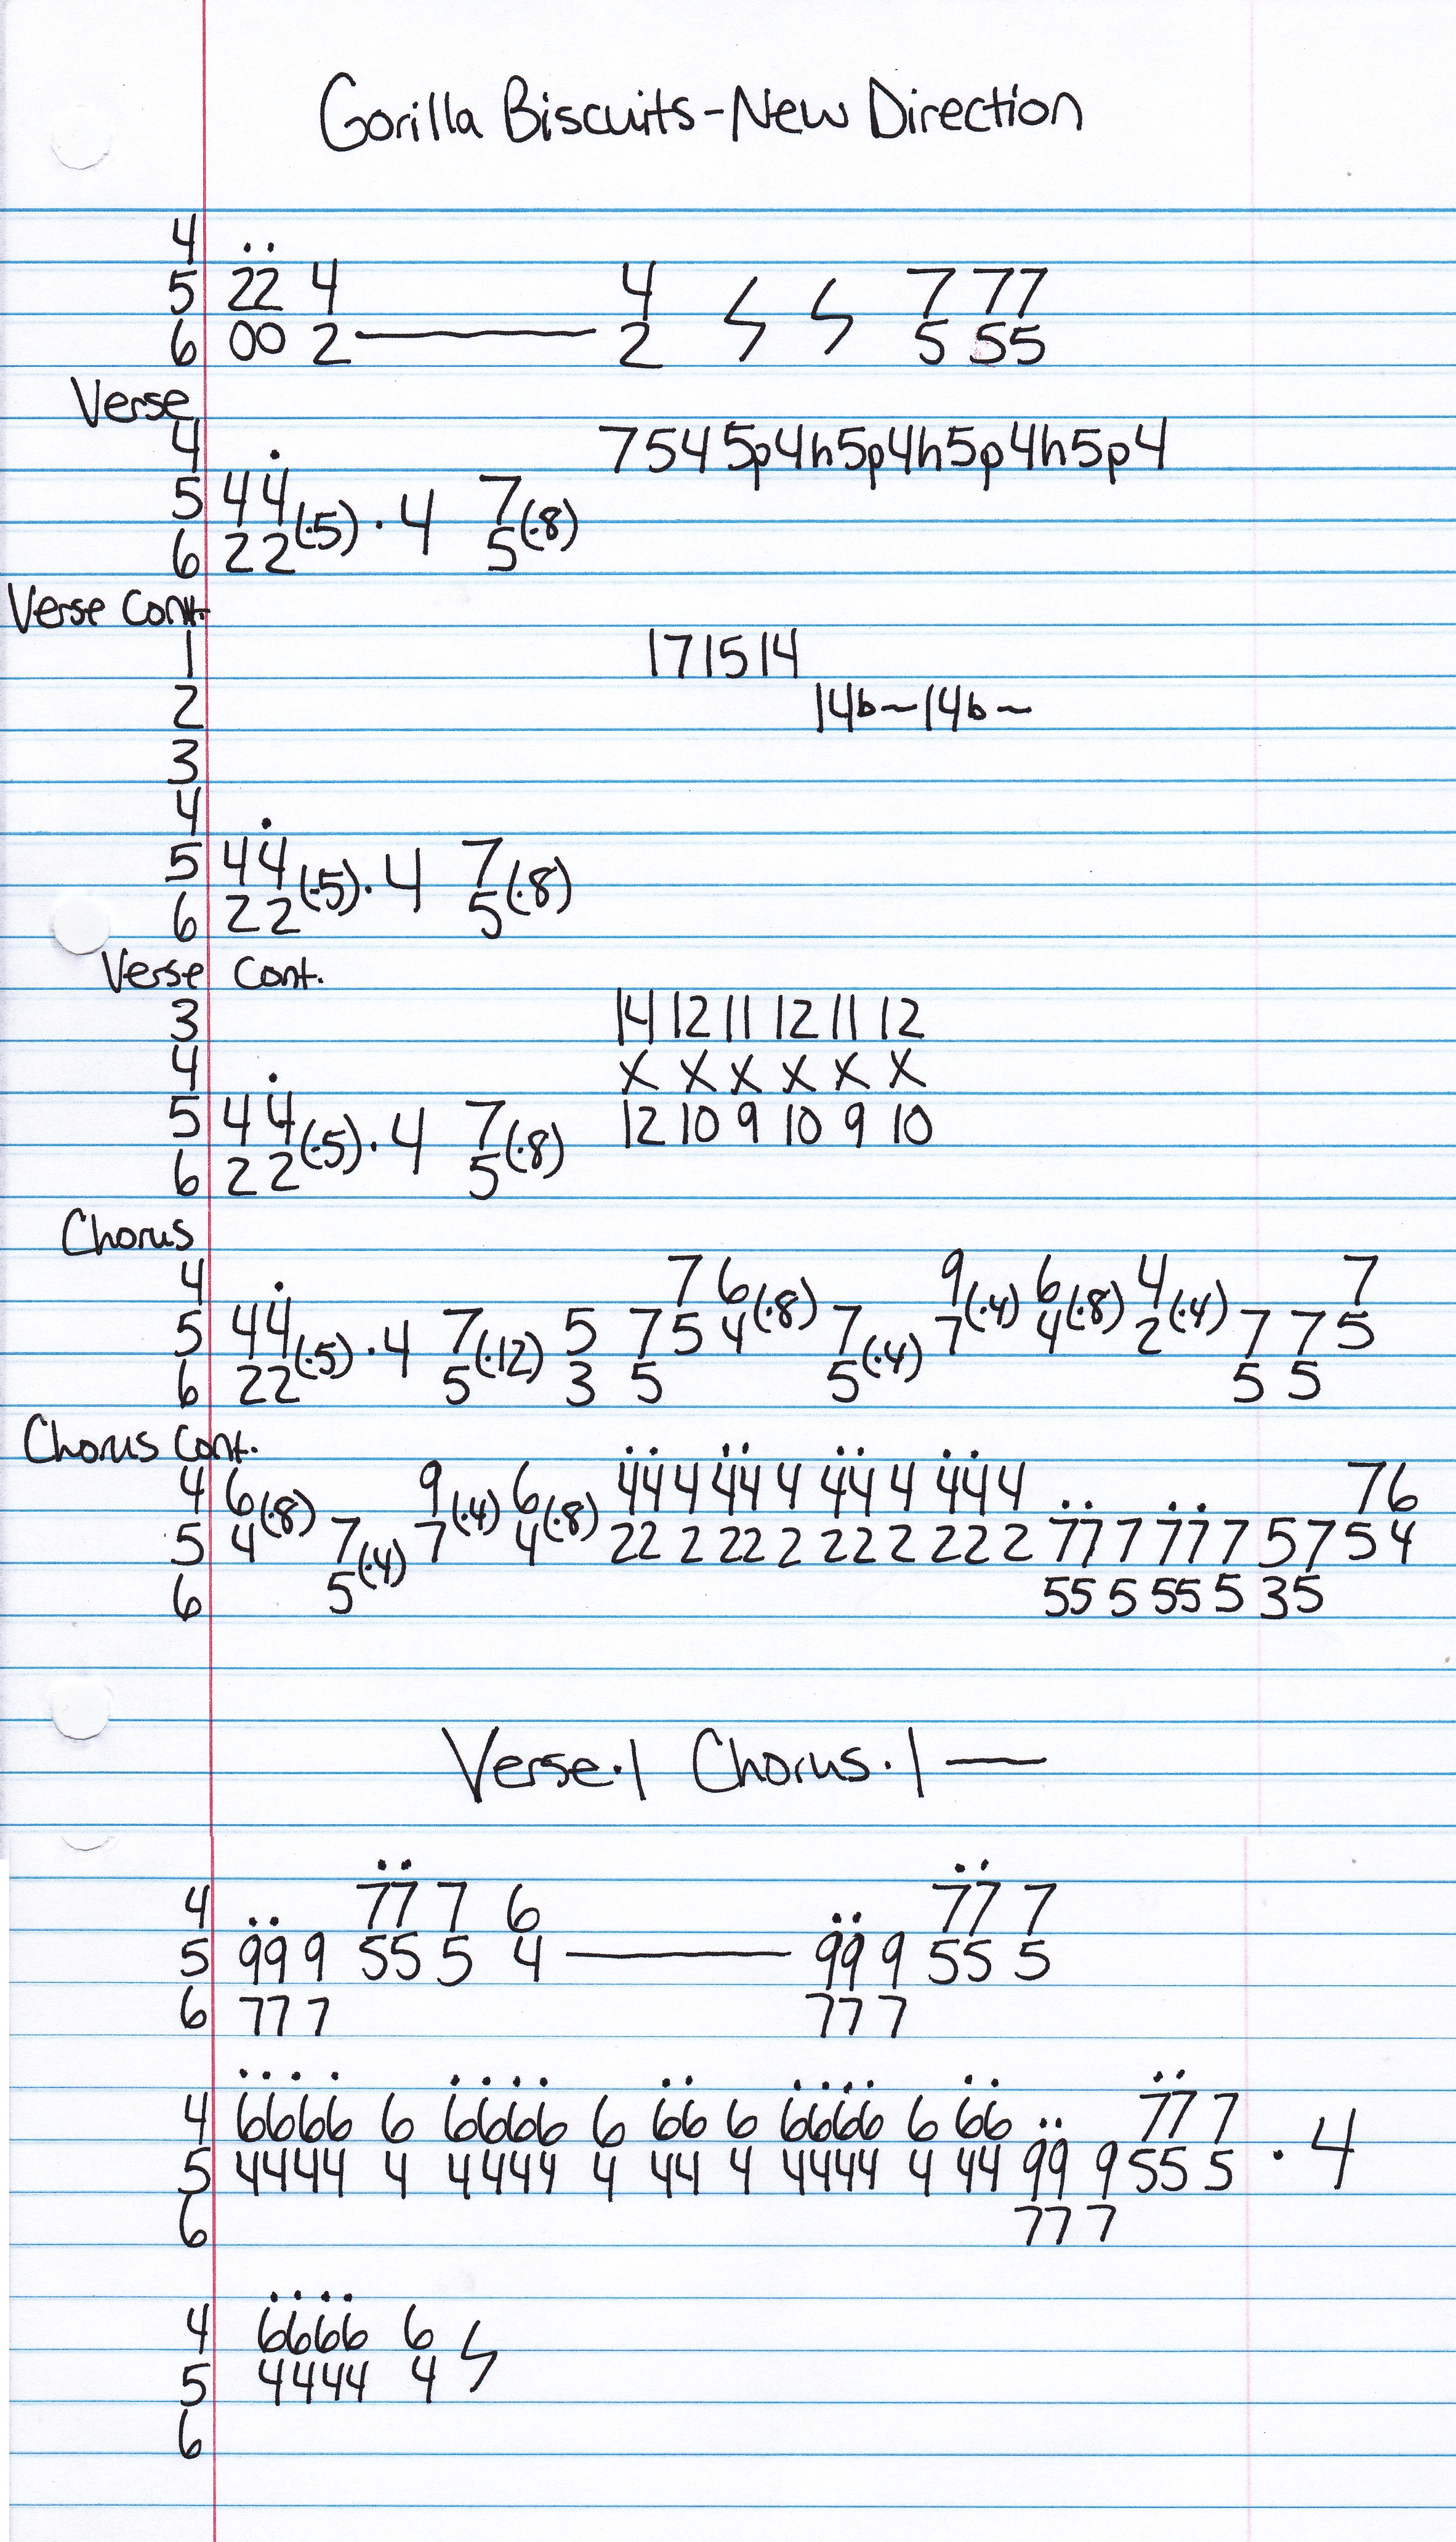 Gorilla Biscuits-New Direction
4 ..
5 22 4 4 7 77
6 00 2 ——— 2 5 55
Verse
4 . 7 5 4 5p4h5p4h5p4h5p4
5 44 (·5) · 4 7 (·8)
6 22 5
Verse Cont.
1 17 15 14
2 14b~14b~
3
4 .
5 44 (·5) · 4 7 (·8)
6 22 5
Verse Cont.
3 14 12 11 12 11 12
4 . x x x x x x
5 44 (·5) · 4 7 (·8) 12 10 9 10 9 10
6 22 5
Chorus
4 . 7 6 (·8) 9 (·4) 6 (·8) 4 (·4) 7
5 44 (·5) · 4 7 (·12) 5 7 5 4 7 (·4) 7 4 2 7 7 5
6 22 5 3 5 5 5 5
Chorus Cont.
4 6 (·8) 9 (·4) 6 (·8) 44 4 44 4 44 4 44 4 7 6
5 4 7 (·4) 7 4 22 2 22 2 22 2 22 2 77 7 77 7 5 7 5 4
6 5 55 5 55 5 3 5
Verse·1 Chorus·1 —
4 .. 77 7 6 .. 77 7
5 99 9 55 5 4 ——— 99 9 55 5
6 77 7 77 7
4 6666 6 6666 6 66 6 6666 6 66 .. 77 7
5 4444 4 4444 4 44 4 4444 4 44 99 9 55 5 · 4
6 77 7
4 6666 6
5 4444 4
6